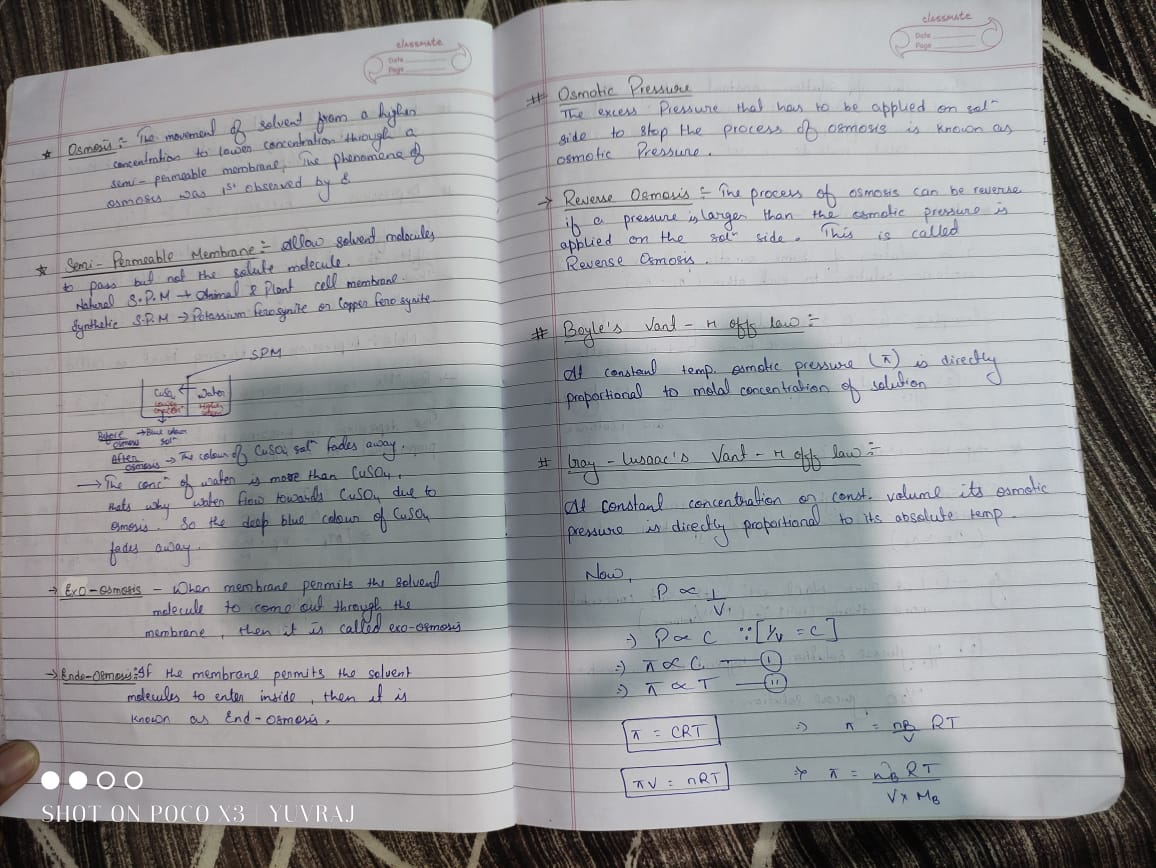 classmate
Date
Page
★ Osmosis :- The movement of solvent from a higher
concentration to lower concentration through a
semi-permeable membrane, The phenomena of
osmosis was 1st observed by &
★ Semi-Permeable Membrane :- Allow solvent molecules
to pass but not the solute molecule.
Natural S.P.M → Animal & Plant cell membrane.
Synthetic S.P.M → Potassium ferosynite or Copper fero synite.
SPM
CuSO4 Water
Before osmosis → Blue colour solⁿ
After osmosis → The colour of CuSO4 solⁿ fades away.
→ The concⁿ of water is more than CuSO4,
thats why water flow towards CuSO4 due to
osmosis. So the deep blue colour of CuSO4
fades away.
→ Exo-osmosis - When membrane permits the solvend
molecule to come out through the
membrane, then it is called exo-osmosis
→ Endo-Osmosis :- If the membrane permits the solvent
molecules to enter inside, then it is
known as End-osmosis.
SHOT ON POCO X3 | YUVRAJ
classmate
Date
Page
# Osmotic Pressure
The excess Pressure that has to be applied on solⁿ
side to stop the process of osmosis is known as
osmotic Pressure.
→ Reverse Osmosis :- The process of osmosis can be reverse
if a pressure is larger than the osmotic pressure is
applied on the solⁿ side. This is called
Reverse Osmosis.
# Boyle's Vant-H off law :-
At constant temp. osmotic pressure (π) is directly
proportional to molal concentration of solution
# Gay-Lusaac's Vant-H off law :-
At constant concentration or const. volume its osmotic
pressure is directly proportional to its absolute temp.
Now,
P ∝ 1/V
⇒ P ∝ C ∵ [1/V = C]
⇒ π ∝ C — (I)
⇒ π ∝ T — (II)
π = CRT ⇒ π = nB/V RT
πV = nRT ⇒ π = wB RT / V × MB